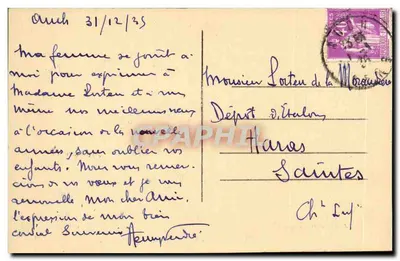 Auch 31/12/35
Ma femme se joint à
moi pour exprimer à
Madame et à vous
même nos meilleurs vœux
à l'occasion de la nouvelle
année, sans oublier vos
enfants. Nous vous remer-
cions de vos vœux et je vous
renouvelle, mon cher Ami,
l'expression de mon bien
cordial Souvenir
Monsieur de la
Dépôt d'Etalons
Haras
Saintes
Ch